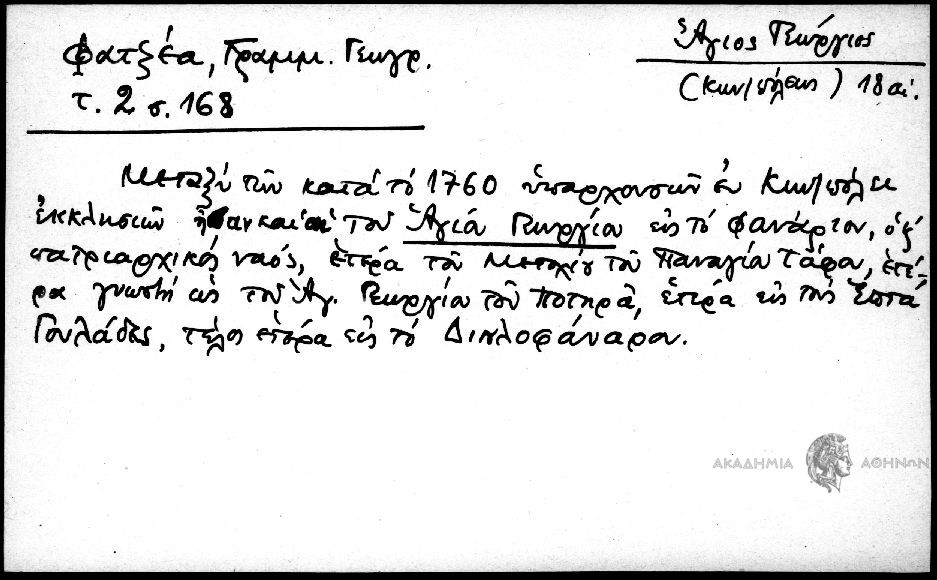 Φατζέα, Γραμμ. Γεωγρ.
τ. 2 σ. 168
Ἅγιος Γεώργιος
(Κων/πόλεως) 18 αἰ.
Μεταξύ τῶν κατά τό 1760 ὑπαρχουσῶν ἐν Κων/πόλει
ἐκκλησιῶν ἦσαν καί αἱ τοῦ Ἁγίου Γεωργίου εἰς τό Φανάριον, ὁ
πατριαρχικός ναός, ἑτέρα τοῦ Μετοχίου τοῦ Παναγίου Τάφου, ἑτέ-
ρα γνωστή ὡς τοῦ Ἁγ. Γεωργίου τοῦ Ποτηρᾶ, ἑτέρα εἰς τούς Ἑπτά
Γουλάδες, τέλος ἑτέρα εἰς τό Διπλοφάναρον.
ΑΚΑΔΗΜΙΑ ΑΘΗΝΩΝ